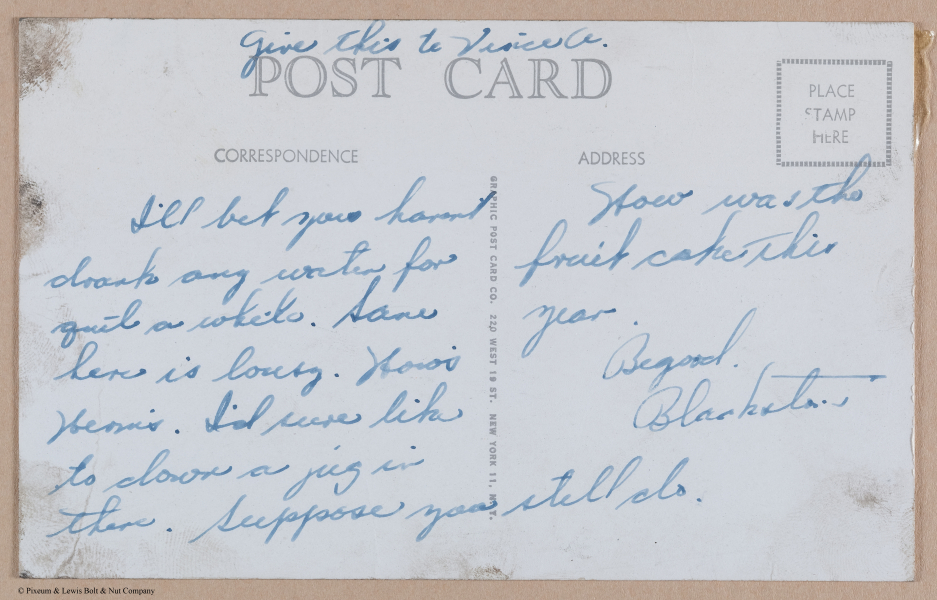 Give this to Vince A.
POST CARD
PLACE
STAMP
HERE
CORRESPONDENCE
ADDRESS
I'll bet you haven't
drank any water for
quit a while. Same
here is lousy. How's
Herm's. I'd sure like
to down a jug in
there. Suppose you still do.
GRAPHIC POST CARD CO. 220 WEST 19 ST. NEW YORK 11, N.Y.
How was the
fruit cake this
year.
Begood.
© Pixeum & Lewis Bolt & Nut Company